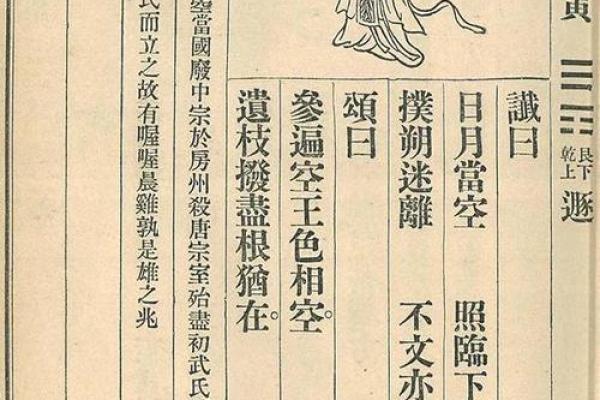 寅
艮下
乾上
遯
讖曰
日月當空　照臨下
撲朔迷離　不文亦
頌曰
參遍空王色相空。
遺枝撥盡根猶在。
曌當國廢中宗於房州殺唐宗室殆盡初武氏
氏而立之故有喔喔晨雞孰是雄之兆